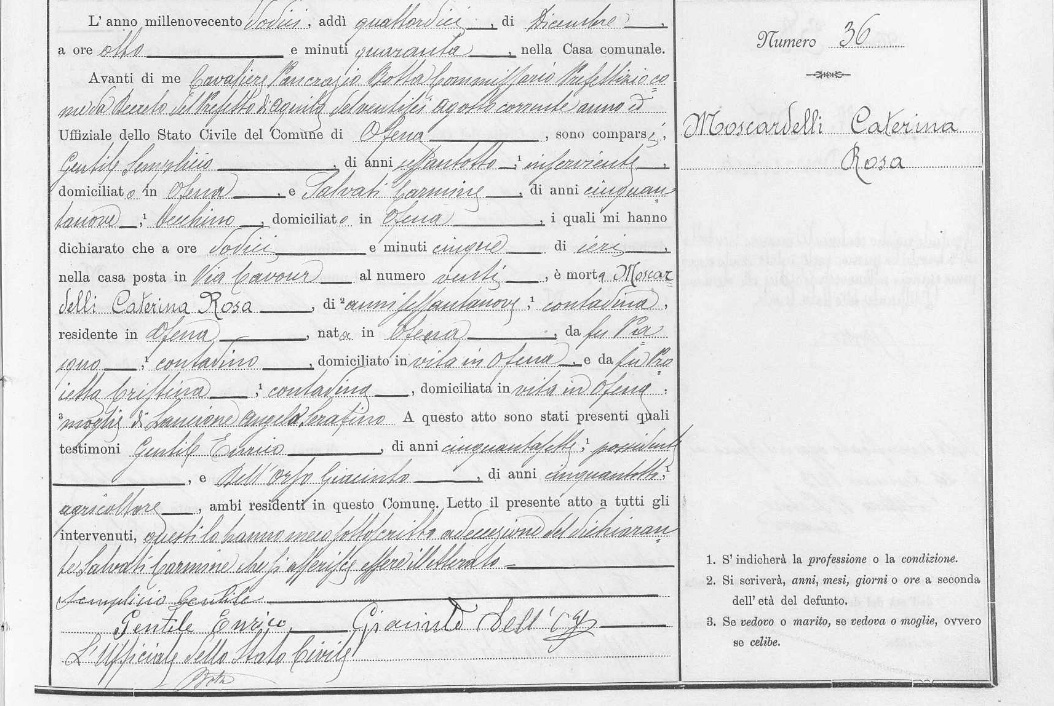 L'anno millenovecento dodici, addì quattordici, di Dicembre,
a ore otto e minuti quaranta, nella Casa comunale.
Avanti di me Cavaliere Pancrazio Botta Commissario Prefettizio co
me da Decreto del Prefetto di Aquila del ventisei agosto corrente anno ed
Uffiziale dello Stato Civile del Comune di Ofena, sono comparsi,
Gentile Semplicio, di anni, ¹ inserviente,
domiciliato in Ofena, e Salvati Carmine, di anni cinquan
tanove, ¹ Vecchino, domiciliato in Ofena, i quali mi hanno
dichiarato che a ore dodici e minuti cinque di ieri,
nella casa posta in Via Cavour al numero venti, è morta Moscar
delli Caterina Rosa, di ² anni sessantanove, ¹ contadina,
residente in Ofena, nata in Ofena, da fu
¹ contadino, domiciliato in vita in Ofena, e da fu
Cristina, ¹ contadina, domiciliata in vita in Ofena,
³ moglie di Lancione Angelo Serafino A questo atto sono stati presenti quali
testimoni Gentile Enrico, di anni cinquantasette, ¹ possidente
, e Dell'Orso Giacinto, di anni cinquantotto, ¹
agricoltore, ambi residenti in questo Comune. Letto il presente atto a tutti gli
intervenuti, questi lo hanno meco sottoscritto ad eccezione del dichiaran
te Salvati Carmine che si asserisce essere illetterato
Semplicio Gentile
Gentile Enrico Giacinto Dell'Orso
L'Ufficiale dello Stato Civile
Botta
Numero 36
Moscardelli Caterina
Rosa
1. S' indicherà la professione o la condizione.
2. Si scriverà, anni, mesi, giorni o ore a seconda
dell' età del defunto.
3. Se vedovo o marito, se vedova o moglie, ovvero
se celibe.